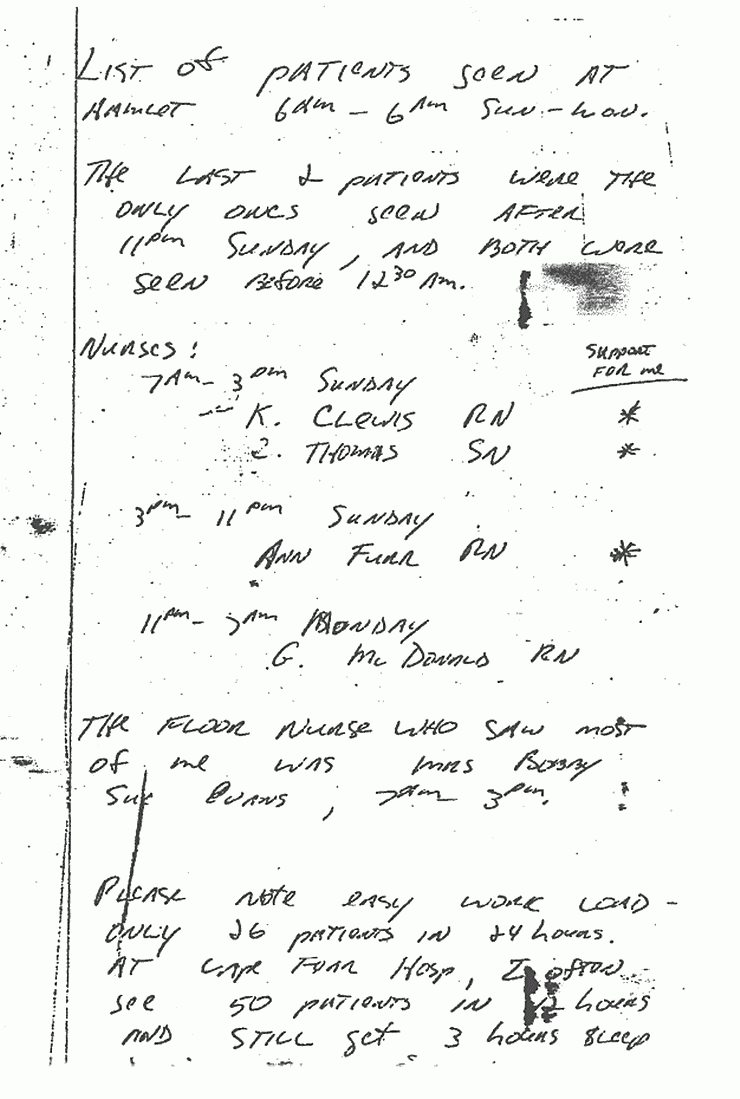 LIST OF PATIENTS SEEN AT
HAMLET 6AM - 6AM SUN - MON.
THE LAST 2 PATIENTS WERE THE
ONLY ONES SEEN AFTER
11PM SUNDAY, AND BOTH WERE
SEEN BEFORE 12 30 AM.
NURSES: SUPPORT
FOR ME
7AM - 3PM SUNDAY
K. CLEWIS RN *
THOMAS SN *
3PM - 11PM SUNDAY
ANN FURR RN *
11PM - 7AM MONDAY
G. Mc DONALD RN
THE FLOOR NURSE WHO SAW MOST
OF ME WAS MRS BOBBY
SUE EVANS, 7AM 3PM.
PLEASE NOTE EASY WORK LOAD -
ONLY 26 PATIENTS IN 24 HOURS.
AT CAPE FEAR HOSP, I OFTEN
SEE 50 PATIENTS IN 12 HOURS
AND STILL GET 3 HOURS SLEEP